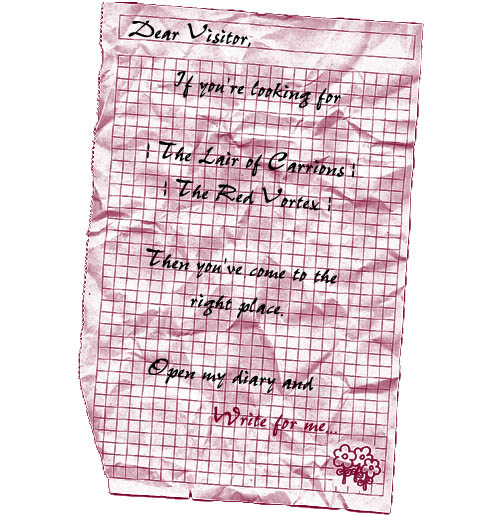 Dear Visitor,
If you're looking for
¦ The Lair of Carrions ¦
¦ The Red Vortex ¦
Then you've come to the
right place.
Open my diary and
Write for me...